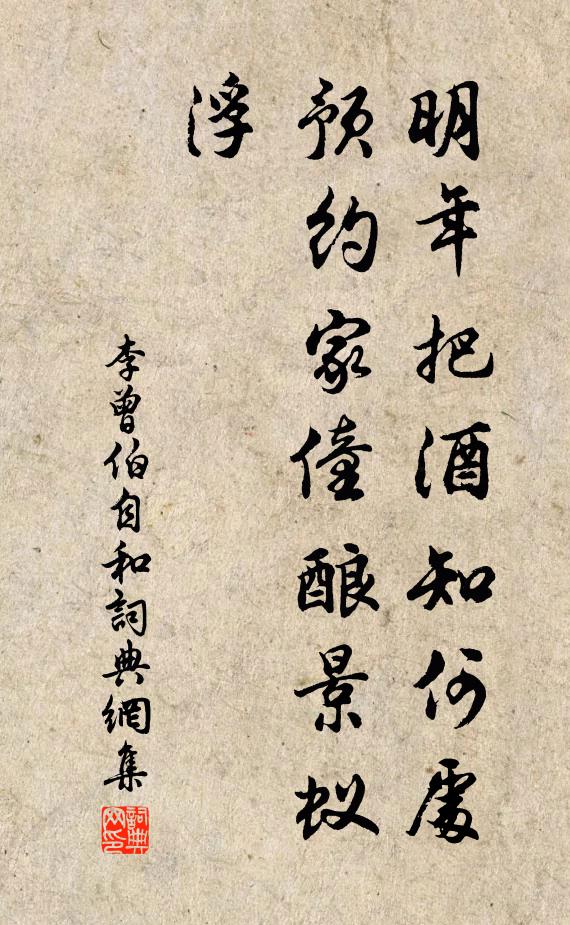 明年把酒知何處
預约家僮酿景蚁
浮
李曾伯自和詞典網集
詞典网印